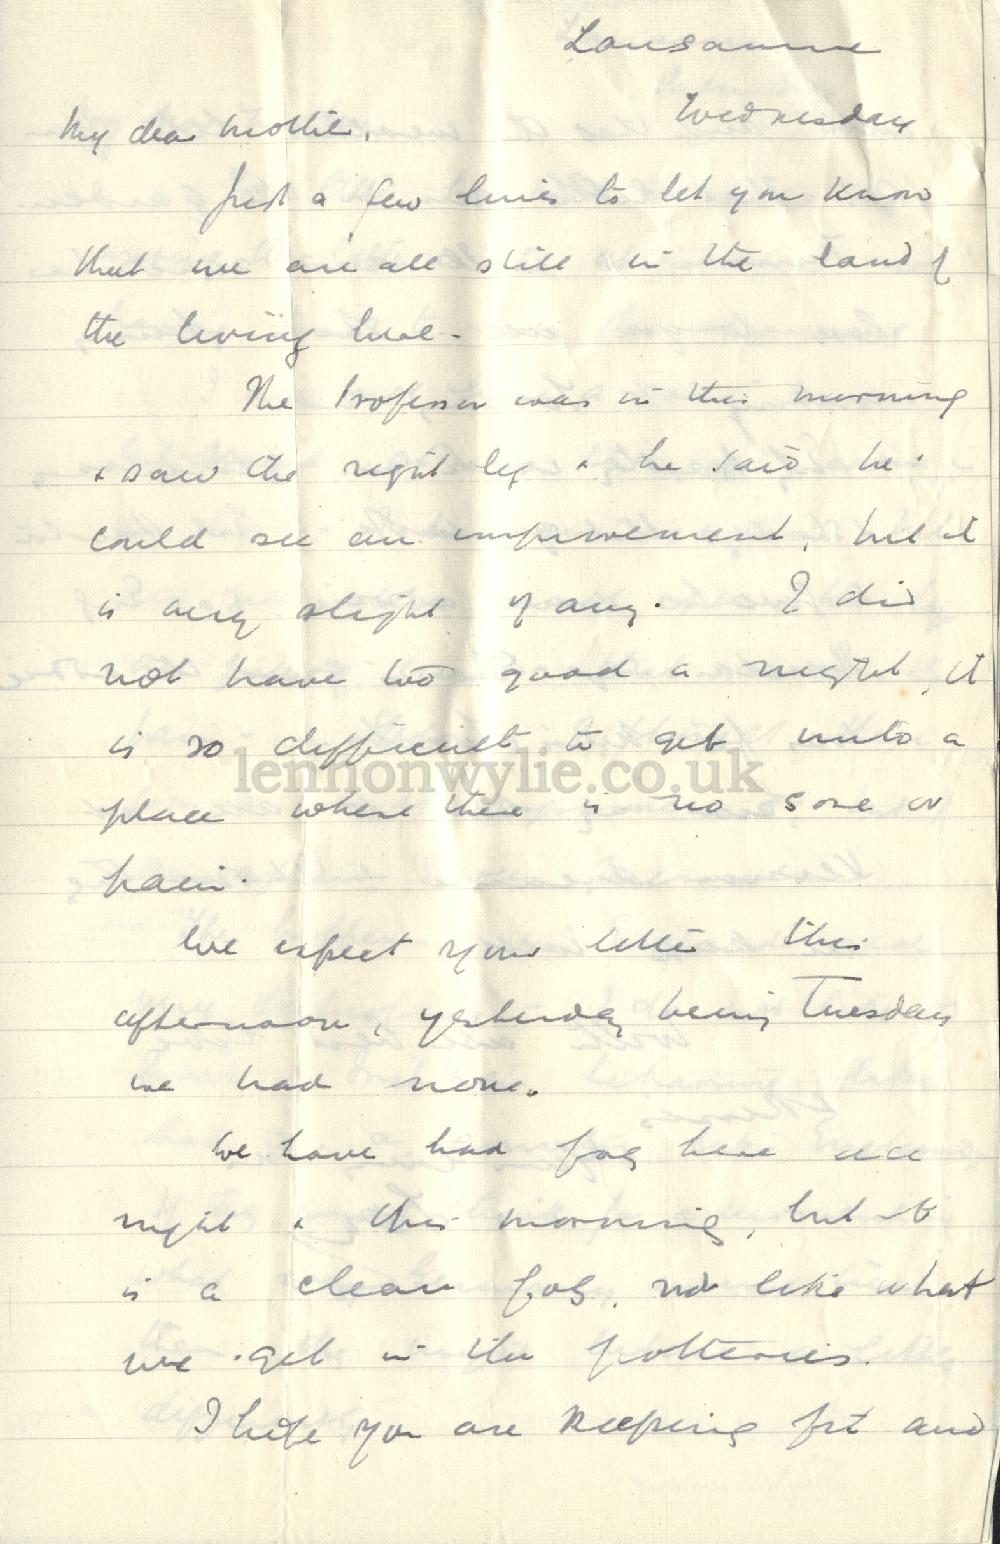 Lausanne
Wednesday
My dear Mother,
Just a few lines to let you know
that we are all still in the land of
the living here -
The Professor was in this morning
& saw the right leg & he said he
could see an improvement, but it
is very slight if any. I did
not have too good a night, it
is so difficult to get into a
place where there is no sore or
pain.
We expect your letter this
afternoon, yesterday being Tuesday
we had none.
We have had fog here all
night & this morning, but it
is a clean fog, not like what
we get in the potteries.
I hope you are keeping fit and
lennonwylie.co.uk